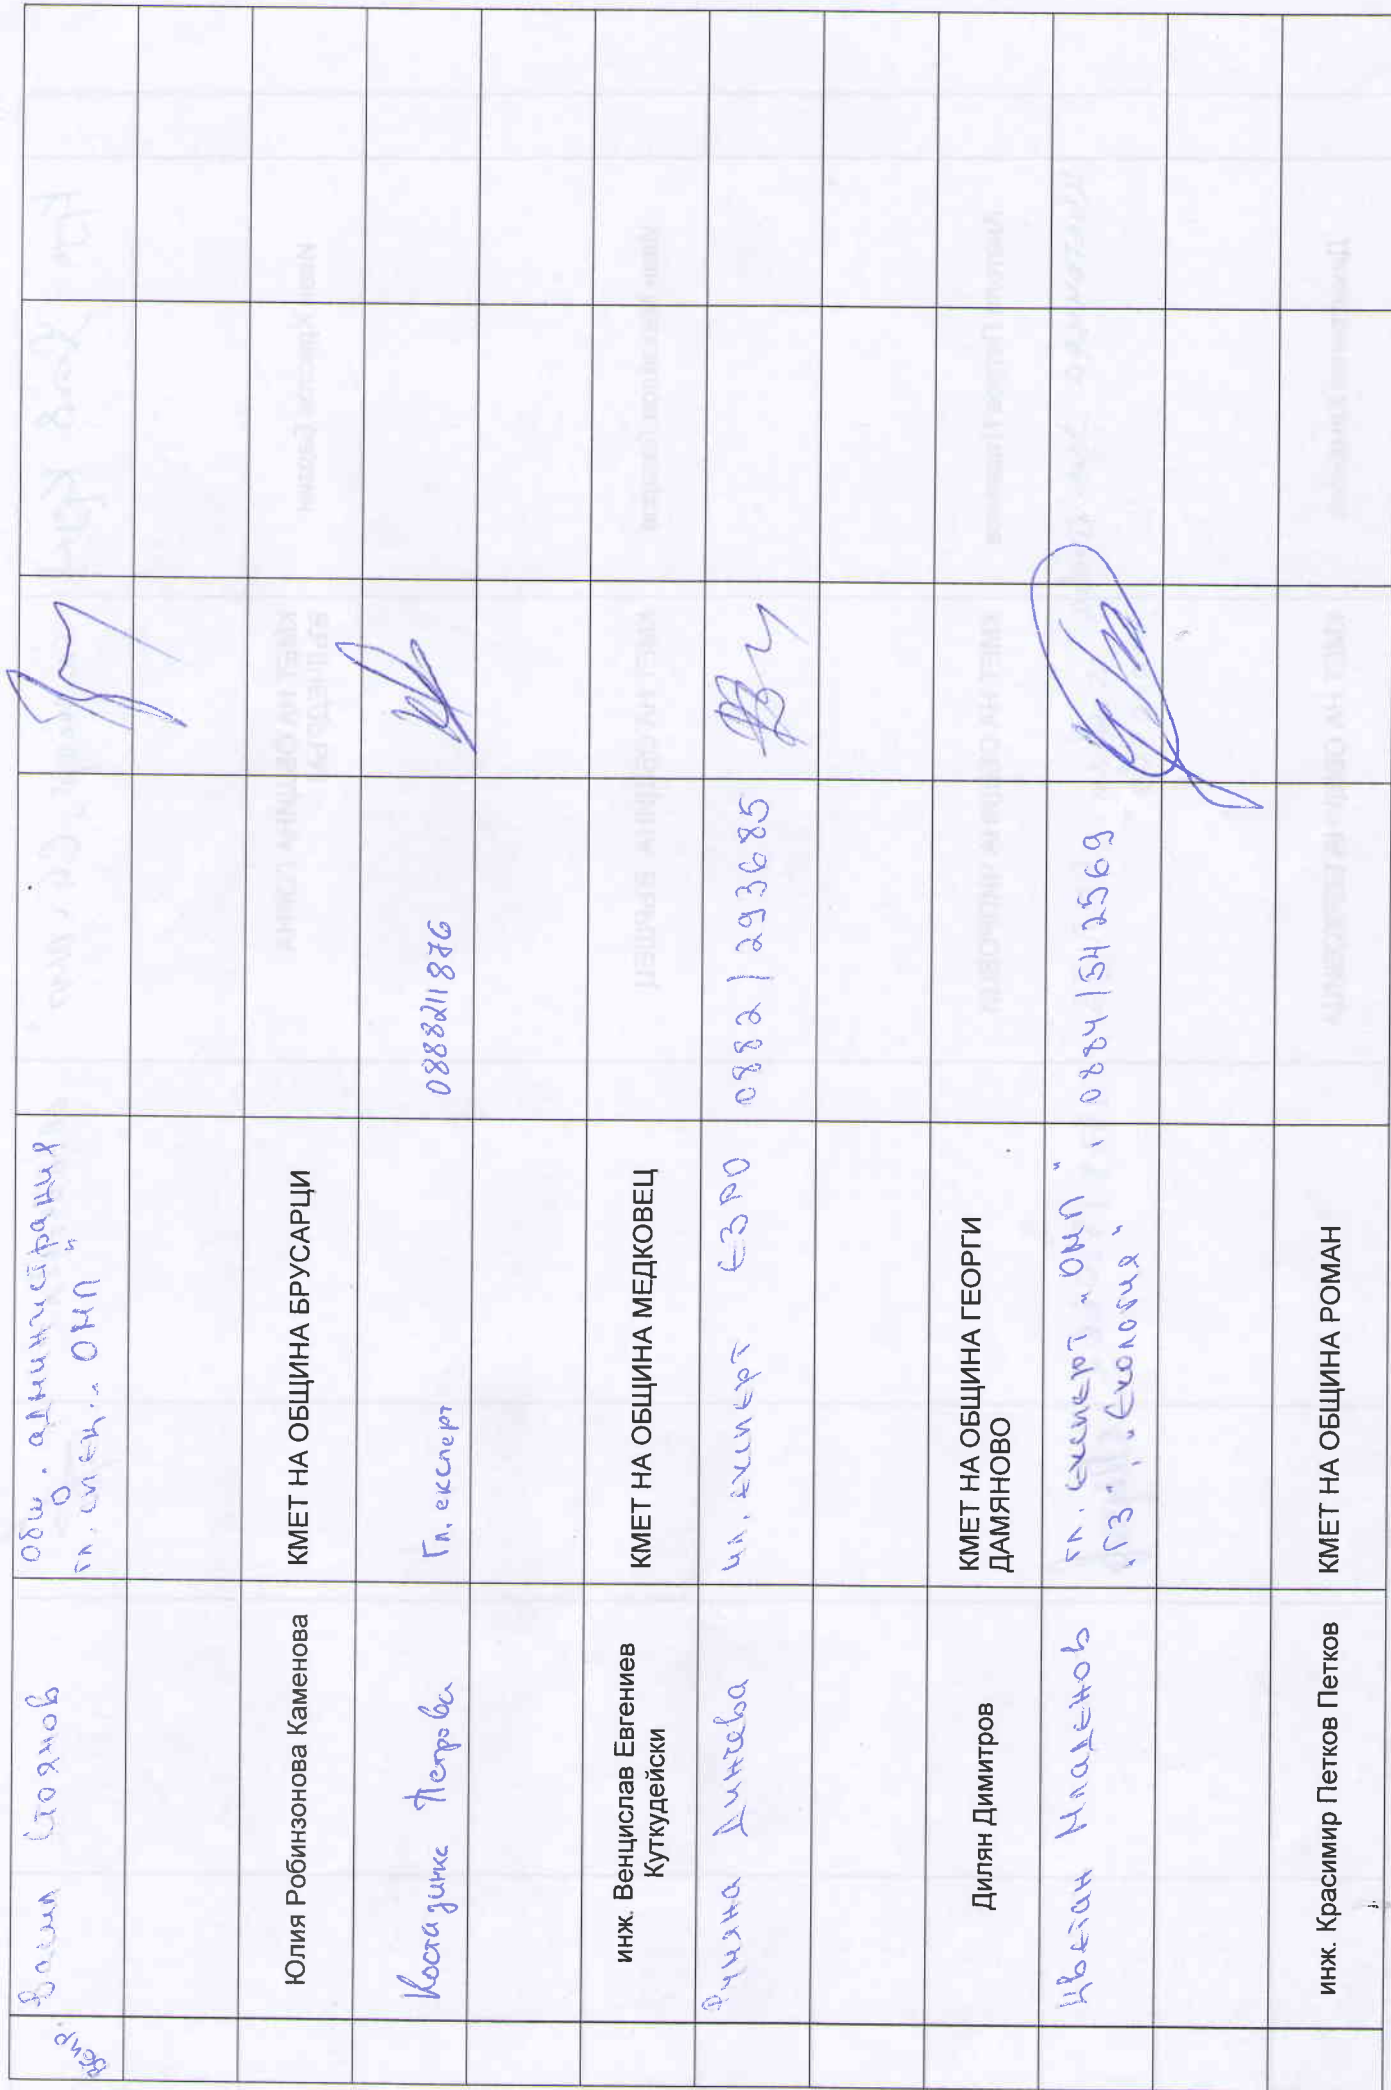 Васил Стоянов
Общ. администрация
гл. спец. „ОМП"
Юлия Робинзонова Каменова
КМЕТ НА ОБЩИНА БРУСАРЦИ
Костадинка Петрова
Гл. експерт
0888211876
инж. Венцислав Евгениев
Куткудейски
КМЕТ НА ОБЩИНА МЕДКОВЕЦ
Румяна Динчева
мл. експерт ЕЗРО
0882/293685
Дилян Димитров
КМЕТ НА ОБЩИНА ГЕОРГИ
ДАМЯНОВО
Цветан Младенов
гл. експерт „ОМП",
„ГЗ", „Екология"
0884/542569
инж. Красимир Петков Петков
КМЕТ НА ОБЩИНА РОМАН